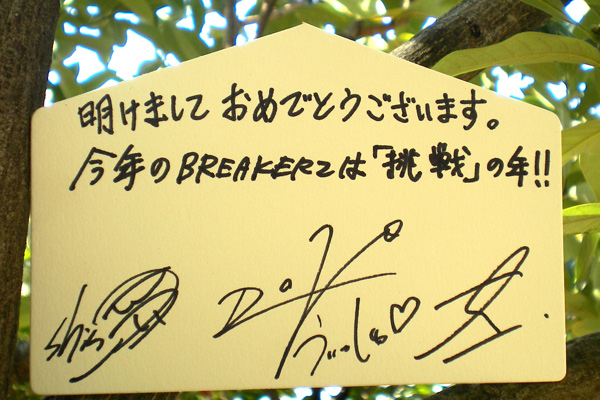 明けまして おめでとうございます。
今年のBREAKERZは「挑戦」の年!!
shin DAI
うぃっしゅ♡